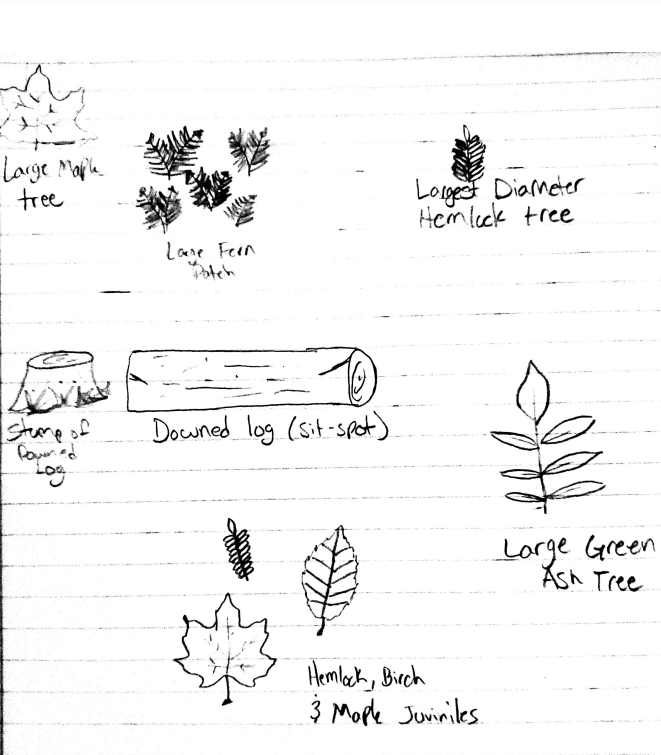 Large Maple
tree
Large Fern
Patch
Largest Diameter
Hemlock tree
Stump of
Downed
Log
Downed log (sit-spot)
Large Green
Ash Tree
Hemlock, Birch
& Maple Juviniles